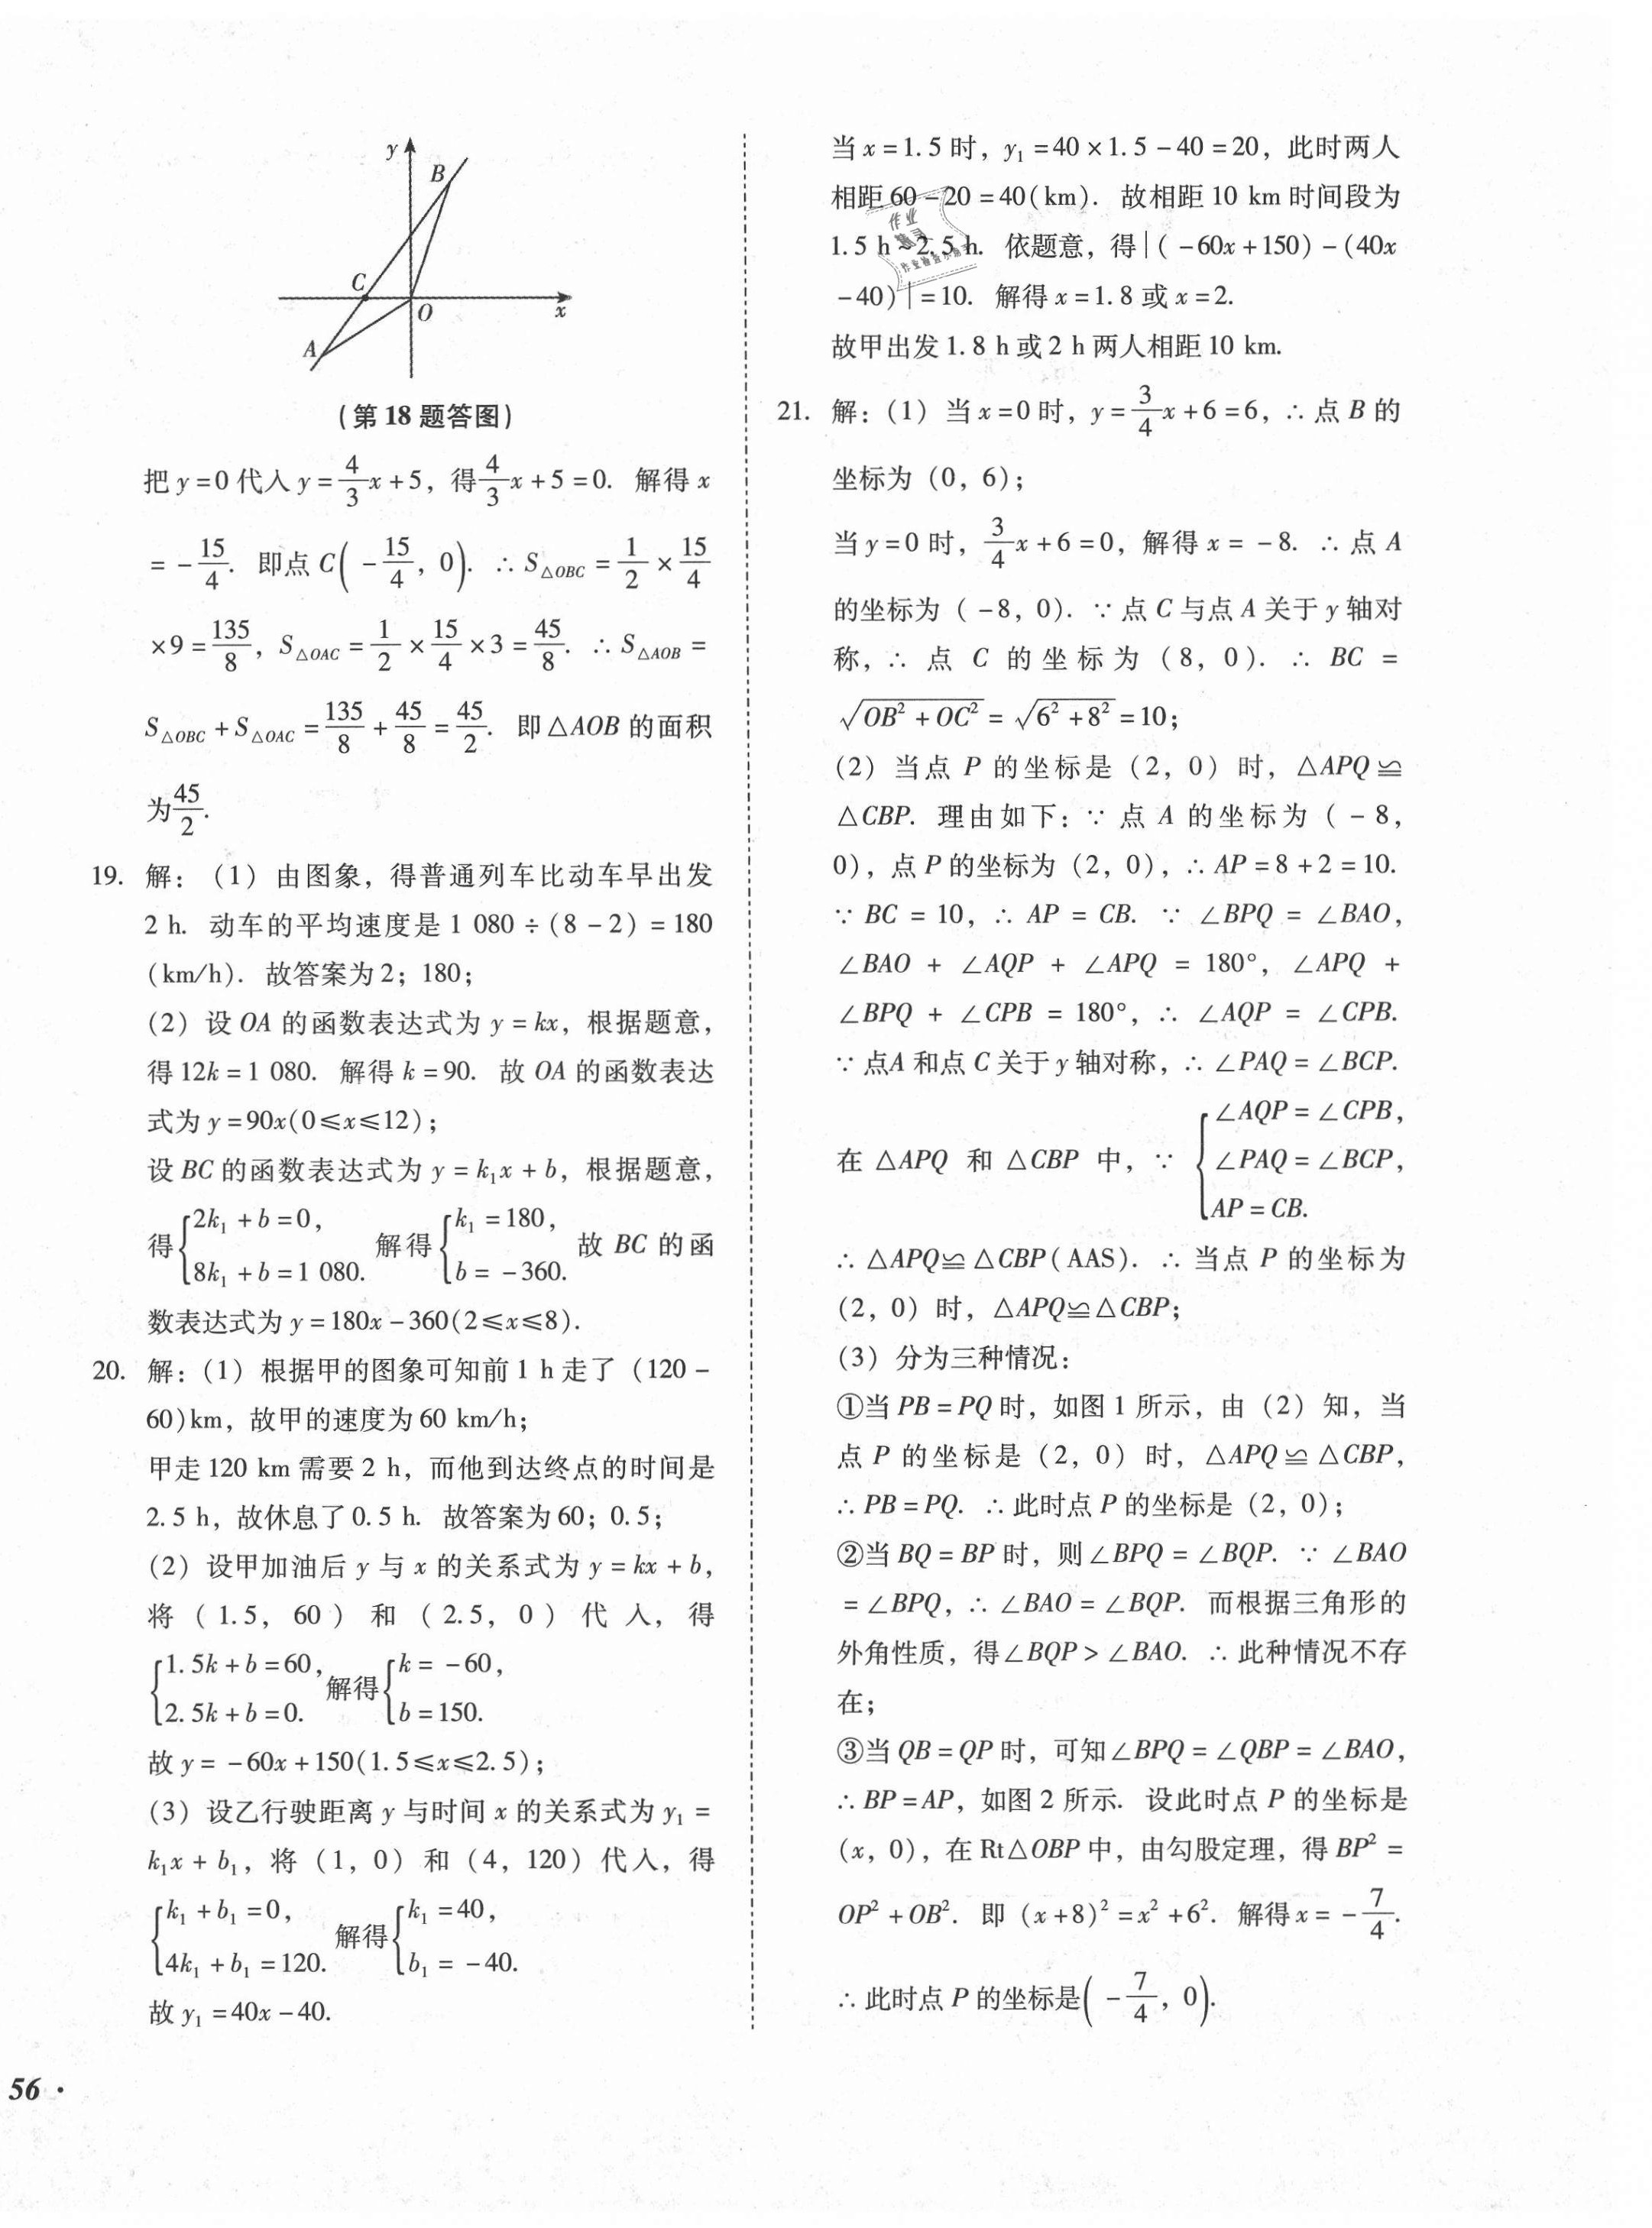 y
B
C
O
x
A
(第18题答图)
把 y=0 代入 y=4/3x+5，得4/3x+5=0. 解得 x
=-15/4. 即点 C(-15/4, 0). ∴ S△OBC=1/2×15/4
×9=135/8，S△OAC=1/2×15/4×3=45/8. ∴ S△AOB=
S△OBC+S△OAC=135/8+45/8=45/2. 即△AOB 的面积
为45/2.
19. 解：(1) 由图象，得普通列车比动车早出发
2 h. 动车的平均速度是 1 080÷(8-2)=180
(km/h). 故答案为 2；180；
(2) 设 OA 的函数表达式为 y=kx，根据题意，
得 12k=1 080. 解得 k=90. 故 OA 的函数表达
式为 y=90x(0≤x≤12)；
设 BC 的函数表达式为 y=k₁x+b，根据题意，
得{2k₁+b=0, 8k₁+b=1 080. 解得{k₁=180, b=-360. 故 BC 的函
数表达式为 y=180x-360(2≤x≤8).
20. 解：(1) 根据甲的图象可知前 1 h 走了 (120-
60)km，故甲的速度为 60 km/h；
甲走 120 km 需要 2 h，而他到达终点的时间是
2.5 h，故休息了 0.5 h. 故答案为 60；0.5；
(2) 设甲加油后 y 与 x 的关系式为 y=kx+b，
将 (1.5, 60) 和 (2.5, 0) 代入，得
{1.5k+b=60, 2.5k+b=0. 解得{k=-60, b=150.
故 y=-60x+150(1.5≤x≤2.5)；
(3) 设乙行驶距离 y 与时间 x 的关系式为 y₁=
k₁x+b₁，将 (1, 0) 和 (4, 120) 代入，得
{k₁+b₁=0, 4k₁+b₁=120. 解得{k₁=40, b₁=-40.
故 y₁=40x-40.
56 ·
当 x=1.5 时，y₁=40×1.5-40=20，此时两人
相距 60-20=40(km). 故相距 10 km 时间段为
1.5 h~2.5 h. 依题意，得|(-60x+150)-(40x
-40)|=10. 解得 x=1.8 或 x=2.
故甲出发 1.8 h 或 2 h 两人相距 10 km.
21. 解：(1) 当 x=0 时，y=3/4x+6=6，∴点 B 的
坐标为 (0, 6)；
当 y=0 时，3/4x+6=0，解得 x=-8. ∴点 A
的坐标为 (-8, 0). ∵点 C 与点 A 关于 y 轴对
称，∴点 C 的坐标为 (8, 0). ∴ BC=
√(OB²+OC²)=√(6²+8²)=10；
(2) 当点 P 的坐标是 (2, 0) 时，△APQ≌
△CBP. 理由如下：∵点 A 的坐标为 (-8,
0)，点 P 的坐标为 (2, 0)，∴ AP=8+2=10.
∵ BC=10，∴ AP=CB. ∵ ∠BPQ=∠BAO，
∠BAO+∠AQP+∠APQ=180°，∠APQ+
∠BPQ+∠CPB=180°，∴ ∠AQP=∠CPB.
∵点 A 和点 C 关于 y 轴对称，∴ ∠PAQ=∠BCP.
在 △APQ 和 △CBP 中，∵ {∠AQP=∠CPB, ∠PAQ=∠BCP, AP=CB.
∴ △APQ≌△CBP(AAS). ∴当点 P 的坐标为
(2, 0) 时，△APQ≌△CBP；
(3) 分为三种情况：
①当 PB=PQ 时，如图 1 所示，由 (2) 知，当
点 P 的坐标是 (2, 0) 时，△APQ≌△CBP，
∴ PB=PQ. ∴此时点 P 的坐标是 (2, 0)；
②当 BQ=BP 时，则∠BPQ=∠BQP. ∵ ∠BAO
=∠BPQ，∴ ∠BAO=∠BQP. 而根据三角形的
外角性质，得∠BQP>∠BAO. ∴此种情况不存
在；
③当 QB=QP 时，可知∠BPQ=∠QBP=∠BAO，
∴ BP=AP，如图 2 所示. 设此时点 P 的坐标是
(x, 0)，在 Rt△OBP 中，由勾股定理，得 BP²=
OP²+OB². 即 (x+8)²=x²+6². 解得 x=-7/4.
∴此时点 P 的坐标是(-7/4, 0).
作业